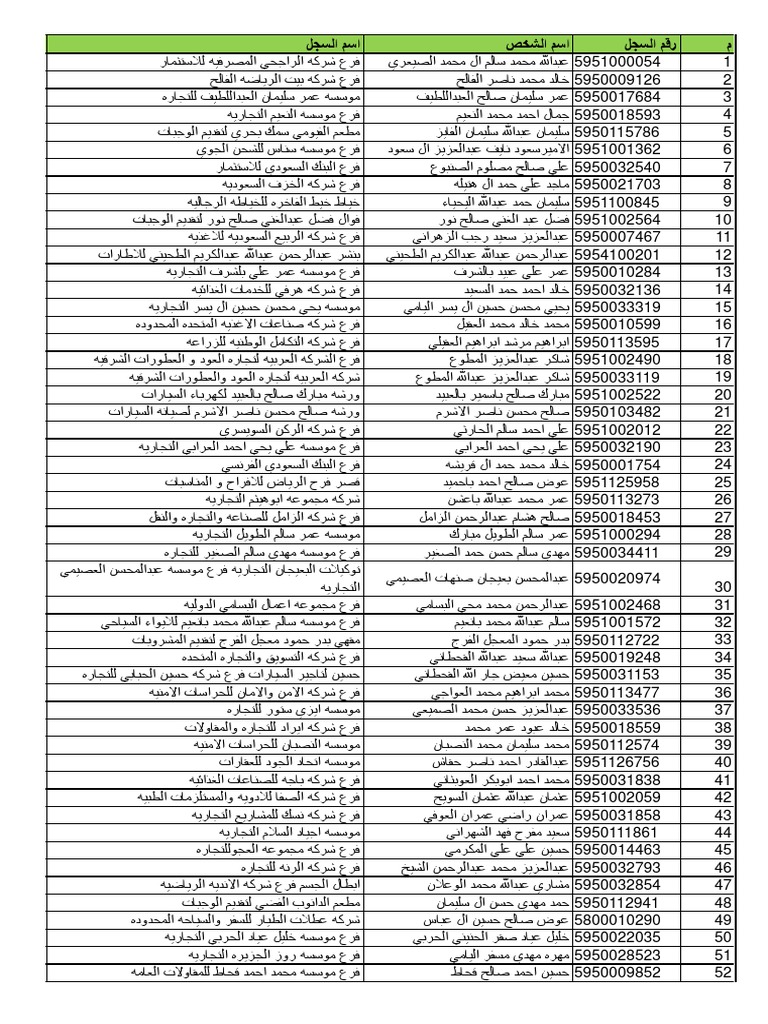 م رقم السجل اسم الشخص اسم السجل
1 5951000054 عبدالله محمد سالم ال محمد الصيعري فرع شركه الراجحي المصرفيه للاستثمار
2 5950009126 خالد محمد ناصر الفالح فرع شركه بيت الرياضه الفالح
3 5950017684 عمر سليمان صالح العبداللطيف موسسه عمر سليمان العبداللطيف للتجاره
4 5950018593 جمال احمد محمد النعيم فرع موسسه النعيم التجاريه
5 5950115786 سليمان عبدالله سليمان الفايز مطعم الفيومي سمك بحري لتقديم الوجبات
6 5951001362 الاميرسعود نايف عبدالعزيز ال سعود فرع موسسه سناس للشحن الجوي
7 5950032540 علي صالح مصلوم الصنبوع فرع البنك السعودي للاستثمار
8 5950021703 ماجد علي حمد ال هتيله فرع شركه الخزف السعوديه
9 5951100845 سليمان حمد عبدالله اليحياء خياط خيط الفاخره للخياطه الرجاليه
10 5951002564 فضل عبد الغني صالح نور فوال فضل عبدالغني صالح نور لتقديم الوجبات
11 5950007467 عبدالعزيز سعيد رجب الزهراني فرع شركه الربيع السعوديه للاغذيه
12 5954100201 عبدالرحمن عبدالله عبدالكريم الطحيني بنشر عبدالرحمن عبدالله عبدالكريم الطحيني للاطارات
13 5950010284 عمر علي عبيد بالشرف فرع موسسه عمر علي بلشرف التجاريه
14 5950032136 خالد احمد حمد السعيد فرع شركه هرفي للخدمات الغذائيه
15 5950033319 يحيي محسن حسين ال يسر اليامي موسسه يحي محسن حسين ال يسر التجاريه
16 5950010599 محمد خالد محمد العقيل فرع شركه صناعات الاغذيه المتحده المحدوده
17 5950113595 ابراهيم مرشد ابراهيم العقيلي فرع شركه التكامل الوطنيه للزراعه
18 5951002490 شاكر عبدالعزيز المطوع فرع الشركه العربيه لتجاره العود و العطورات الشرقيه
19 5950033119 شاكر عبدالعزيز عبدالله المطوع شركه العربيه لتجاره العود والعطورات الشرقيه
20 5951002522 مبارك صالح باسمير بالعبيد ورشه مبارك صالح بالعبيد لكهرباء السيارات
21 5950103482 صالح محسن ناصر الاشرم ورشه صالح محسن ناصر الاشرم لصيانه السيارات
22 5951002012 علي احمد سالم الحارثي فرع شركه الركن السويسري
23 5950032190 علي يحي احمد العرابي فرع موسسه علي يحي احمد العرابي التجاريه
24 5950001754 خالد محمد حمد ال قريشه فرع البنك السعودي الفرنسي
25 5951125958 عوض صالح احمد باحميد قصر فرح الرياض للافراح و المناسبات
26 5950113273 عمر محمد عبدالله باعشن شركه مجموعه ابوهيثم التجاريه
27 5950018453 صالح هشام عبدالرحمن الزامل فرع شركه الزامل للصناعه والتجاره والنقل
28 5951000294 عمر سالم الطويل مبارك موسسه عمر سالم الطويل التجاريه
29 5950034411 مهدي سالم حسن حمد الصغير فرع موسسه مهدي سالم الصغير للتجاره
30 5950020974 عبدالمحسن بعيجان صنهات العصيمي توكيلات البعيجان التجاريه فرع موسسه عبدالمحسن العصيمي
التجاريه
31 5951002468 عبدالرحمن محمد محي البسامي فرع مجموعه اعمال البسامي الدوليه
32 5951001572 سالم عبدالله محمد بانعيم فرع موسسه سالم عبدالله محمد بانعيم للايواء السياحي
33 5950112722 بدر حمود المعجل الفرج مقهي بدر حمود معجل الفرج لتقديم المشروبات
34 5950019248 عبدالله سعيد عبدالله القحطاني فرع شركه التسويق والتجاره المتحده
35 5950031153 حسين معيض جار الله القحطاني حسين لتاجير السيارات فرع شركه حسين الحبابي للتجاره
36 5950113477 محمد ابراهيم محمد العواجي فرع شركه الامن والامان للحراسات الامنيه
37 5950033536 عبدالعزيز حسن محمد الصميعي موسسه ايزي ستور للتجاره
38 5950018559 خالد عبود عمر محمد فرع شركه ايراد للتجاره والمقاولات
39 5950112574 محمد سليمان محمد النصبان موسسه النصبان للحراسات الامنيه
40 5951126756 عبدالقادر احمد ناصر حفاش موسسه اتحاد الجود للعقارات
41 5950031838 محمد احمد ابوبكر العويثاني فرع شركه باجه للصناعات الغذائيه
42 5951002059 عثمان عبدالله عثمان السويح فرع شركه الصفا للادويه والمستلزمات الطبيه
43 5950031858 عمران راضي عمران العوفي فرع شركه نسك للمشاريع التجاريه
44 5950111861 سعيد مفرح فهد الشهراني موسسه اجياد السلام التجاريه
45 5950014463 حسين علي علي المكرمي فرع شركه مجموعه العجوللتجاره
46 5950032793 عبدالعزيز محمد عبدالرحمن الشيخ فرع شركه الرنه للتجاره
47 5950032854 مشاري عبدالله محمد الوعلان ابطال الجسم فرع شركه الانديه الرياضيه
48 5950112941 حمد مهدي حسن ال سليمان مطعم الدانوب الفضي لتقديم الوجبات
49 5800010290 عوض صالح حسين ال عباس شركه عطلات الطيار للسفر والسياحه المحدوده
50 5950022035 خليل عياد صقر الحنيني الحربي فرع موسسه خليل عياد الحربي التجاريه
51 5950028523 مهره مهدي مسفر اليامي فرع موسسه روز الجزيره التجاريه
52 5950009852 حسين احمد صالح قحاط فرع موسسه محمد احمد قحاط للمقاولات العامه